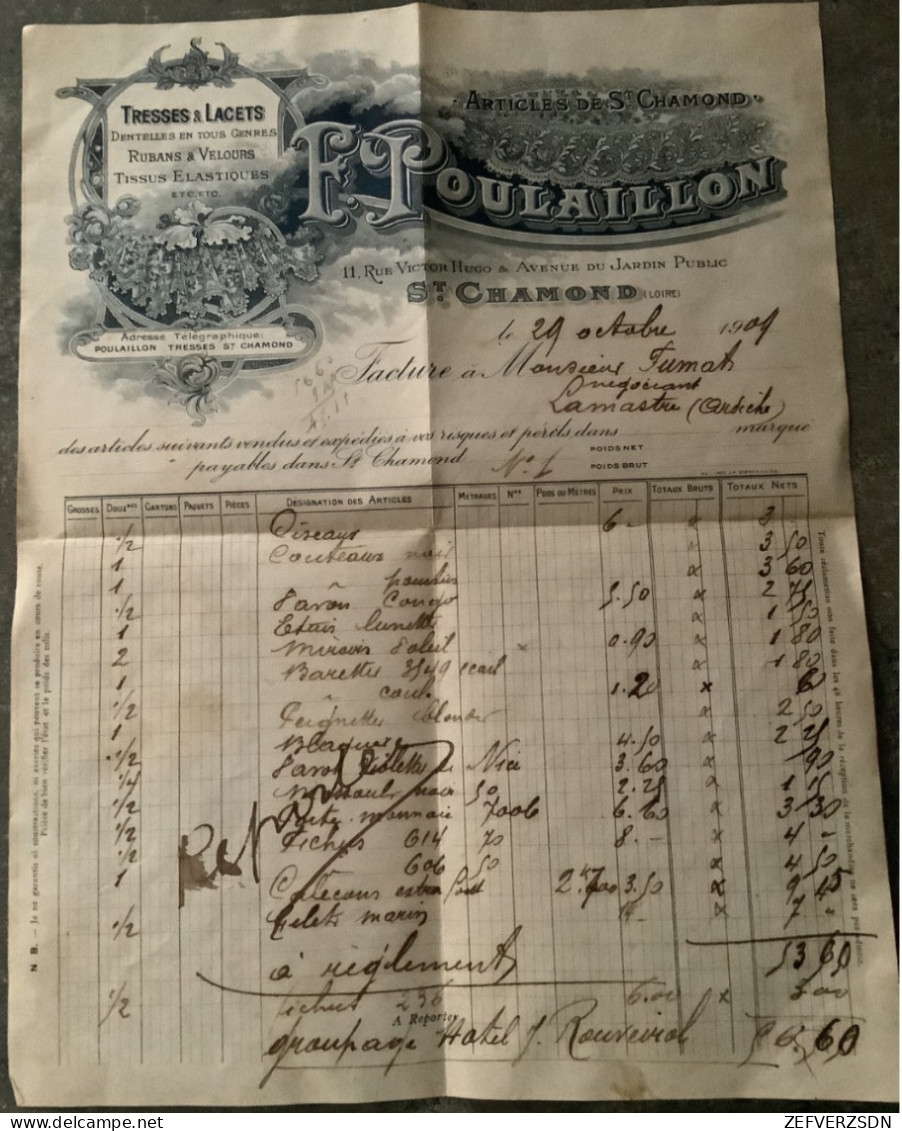 TRESSES & LACETS
DENTELLES EN TOUS GENRES
RUBANS & VELOURS
TISSUS ELASTIQUES
ETC. ETC.
ARTICLES DE ST CHAMOND
F. POULAILLON
11, RUE VICTOR HUGO & AVENUE DU JARDIN PUBLIC
ST CHAMOND (LOIRE)
Adresse Télégraphique:
POULAILLON TRESSES ST CHAMOND
le 29 octobre 1909
Facture à Monsieur Fumat
négociant
Lamastre (Ardèche)
des articles suivants vendus et expédiés à vos risques et périls dans marque
payables dans St Chamond No 1
POIDS NET
POIDS BRUT
GROSSES DOUZnes CARTONS PAQUETS PIÈCES DÉSIGNATION DES ARTICLES MÉTRAGES Nos POIDS OU MÈTRES PRIX TOTAUX BRUTS TOTAUX NETS
1/2 Ciseaux 6 - x 3 -
1 Couteaux noir x 3 50
1 x 3 60
1/2 Savon Congo 5.50 x 2 75
1 Etuis lunettes x 1 50
2 Miroirs Soleil x 0.90 x 1 80
1 Barettes 3549 x 1 80
1/2 1.20 x 60
1 Peignettes x 2 50
1/2 4.50 x 2 25
1/4 Savon Violette de Nice 3.60 x 90
1/2 noir 50 2.25 x 1 15
1/2 Porte-monnaie 7006 6.60 x 3 30
1/2 Fichus 614 70 8.- x 4 -
1 606 50 x 4 50
Caleçons extra 3.50 x 9 45
1/2 Gilets marin x 7 -
à règlement 53 60
1/2 fichus 236 6.00 x 3 00
A Reporter
groupage Hotel J. Rouveirol 56.60
N B. — Je ne garantis ni contractions, ni avaries qui peuvent se produire en cours de route.
Prière de bien vérifier l'état et le poids des colis.
Toute réclamation non faite dans les 48 heures de la réception de la marchandise ne sera pas admise.
ZEFVERZSDN